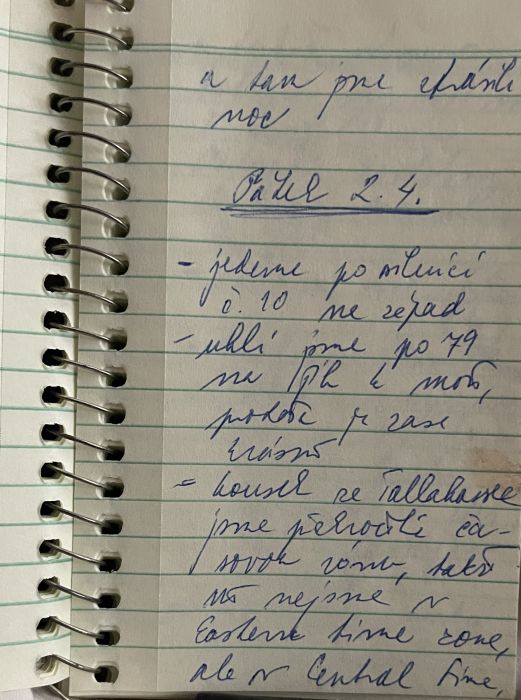 a tam jsme strávili
noc
Pátek 2.4.
- jedeme po silnici
č. 10 na západ
- uhli jsme po 79
na jih k moři,
protože je zase
krásně
- kousek za Tallahassee
jsme překročili ča-
sovou zónu, takže
už nejsme v
Eastern time zone,
ale v Central time,